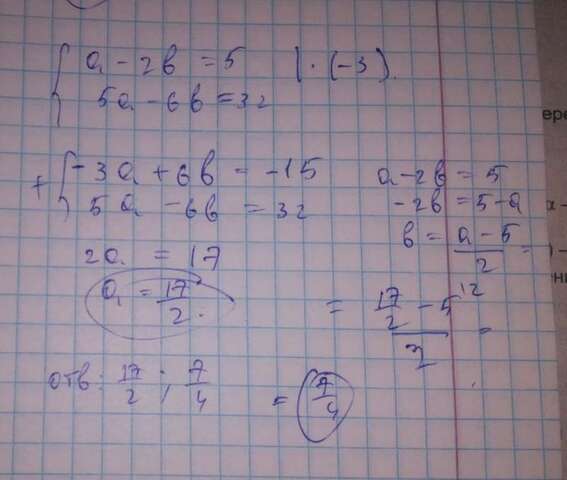 a - 2b = 5 | · (-3).
5a - 6b = 32
+ - 3a + 6b = -15
5a - 6b = 32
2a = 17
a = 17/2.
a - 2b = 5
- 2b = 5 - a
b = a - 5 / 2 =
= 17/2 - 5 / 2 =
= 7/4
отв: 17/2 ; 7/4